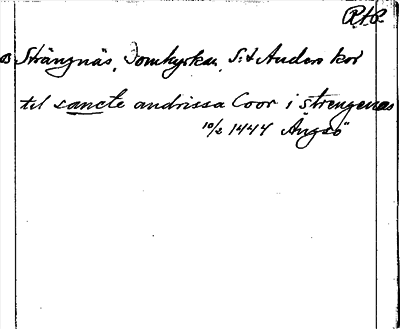 RAP
Strängnäs, Domkyrkan, S:t Anders kor
til sancte andrissa Coor i strengenæs
10/2 1444 Ängsö"